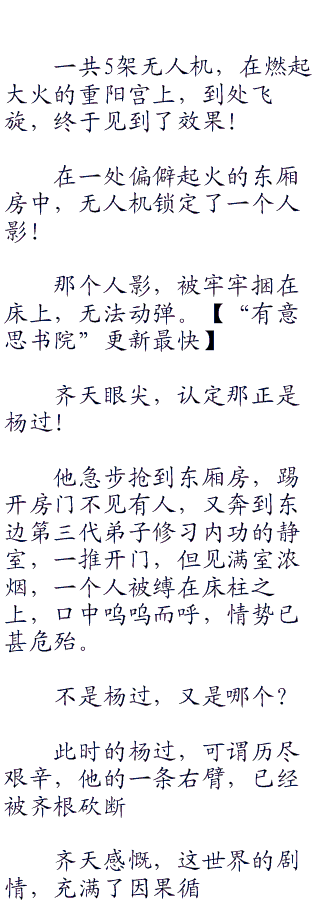 一共5架无人机，在燃起
大火的重阳宫上，到处飞
旋，终于见到了效果！
在一处偏僻起火的东厢
房中，无人机锁定了一个人
影！
那个人影，被牢牢捆在
床上，无法动弹。【“有意
思书院”更新最快】
齐天眼尖，认定那正是
杨过！
他急步抢到东厢房，踢
开房门不见有人，又奔到东
边第三代弟子修习内功的静
室，一推开门，但见满室浓
烟，一个人被缚在床柱之
上，口中呜呜而呼，情势已
甚危殆。
不是杨过，又是哪个？
此时的杨过，可谓历尽
艰辛，他的一条右臂，已经
被齐根砍断
齐天感慨，这世界的剧
情，充满了因果循